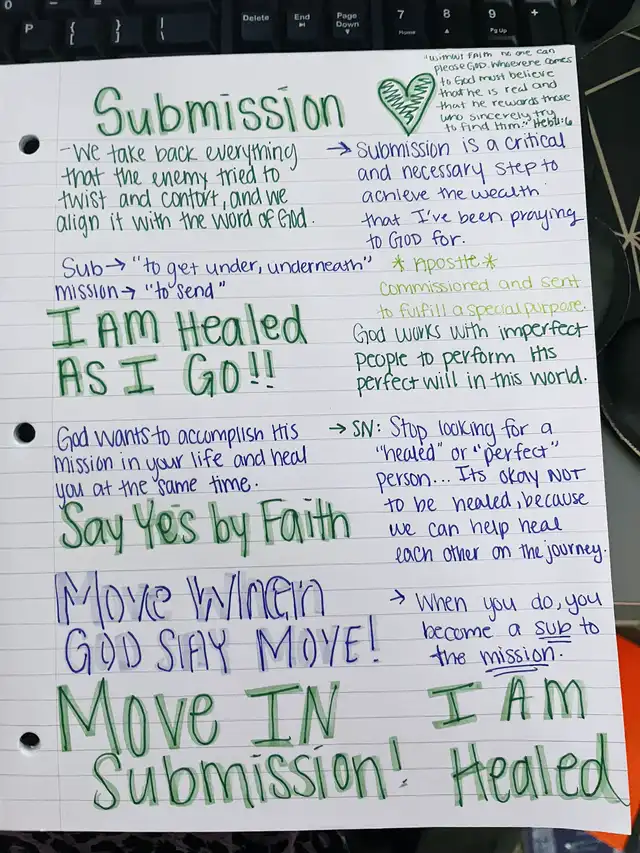 Delete
End
Page
Down
7
Home
8
9
Pg Up
+
P
{
[
}
]
|
\
"Without FAITH no one can
please GOD. Whoevere comes
to God must believe
that he is real and
that he rewards those
who sincerely try
to find Him." Heb11:6
Submission
-We take back everything
that the enemy tried to
twist and contort, and we
align it with the word of God.
→ Submission is a critical
and necessary step to
achieve the wealth
that I've been praying
to GOD for.
Sub → "to get under, underneath"
mission → "to send"
* Apostle *
commissioned and sent
to fulfill a special purpose.
I AM Healed
AS I GO!!
God works with imperfect
people to perform His
perfect will in this world.
God wants to accomplish His
mission in your life and heal
you at the same time.
→ SN: Stop looking for a
"healed" or "perfect"
person... Its okay NOT
to be healed, because
we can help heal
each other on the journey.
Say Yes by Faith
Move When
GOD SAY MOVE!
→ When you do, you
become a sub to
the mission.
Move IN
Submission!
I AM
Healed